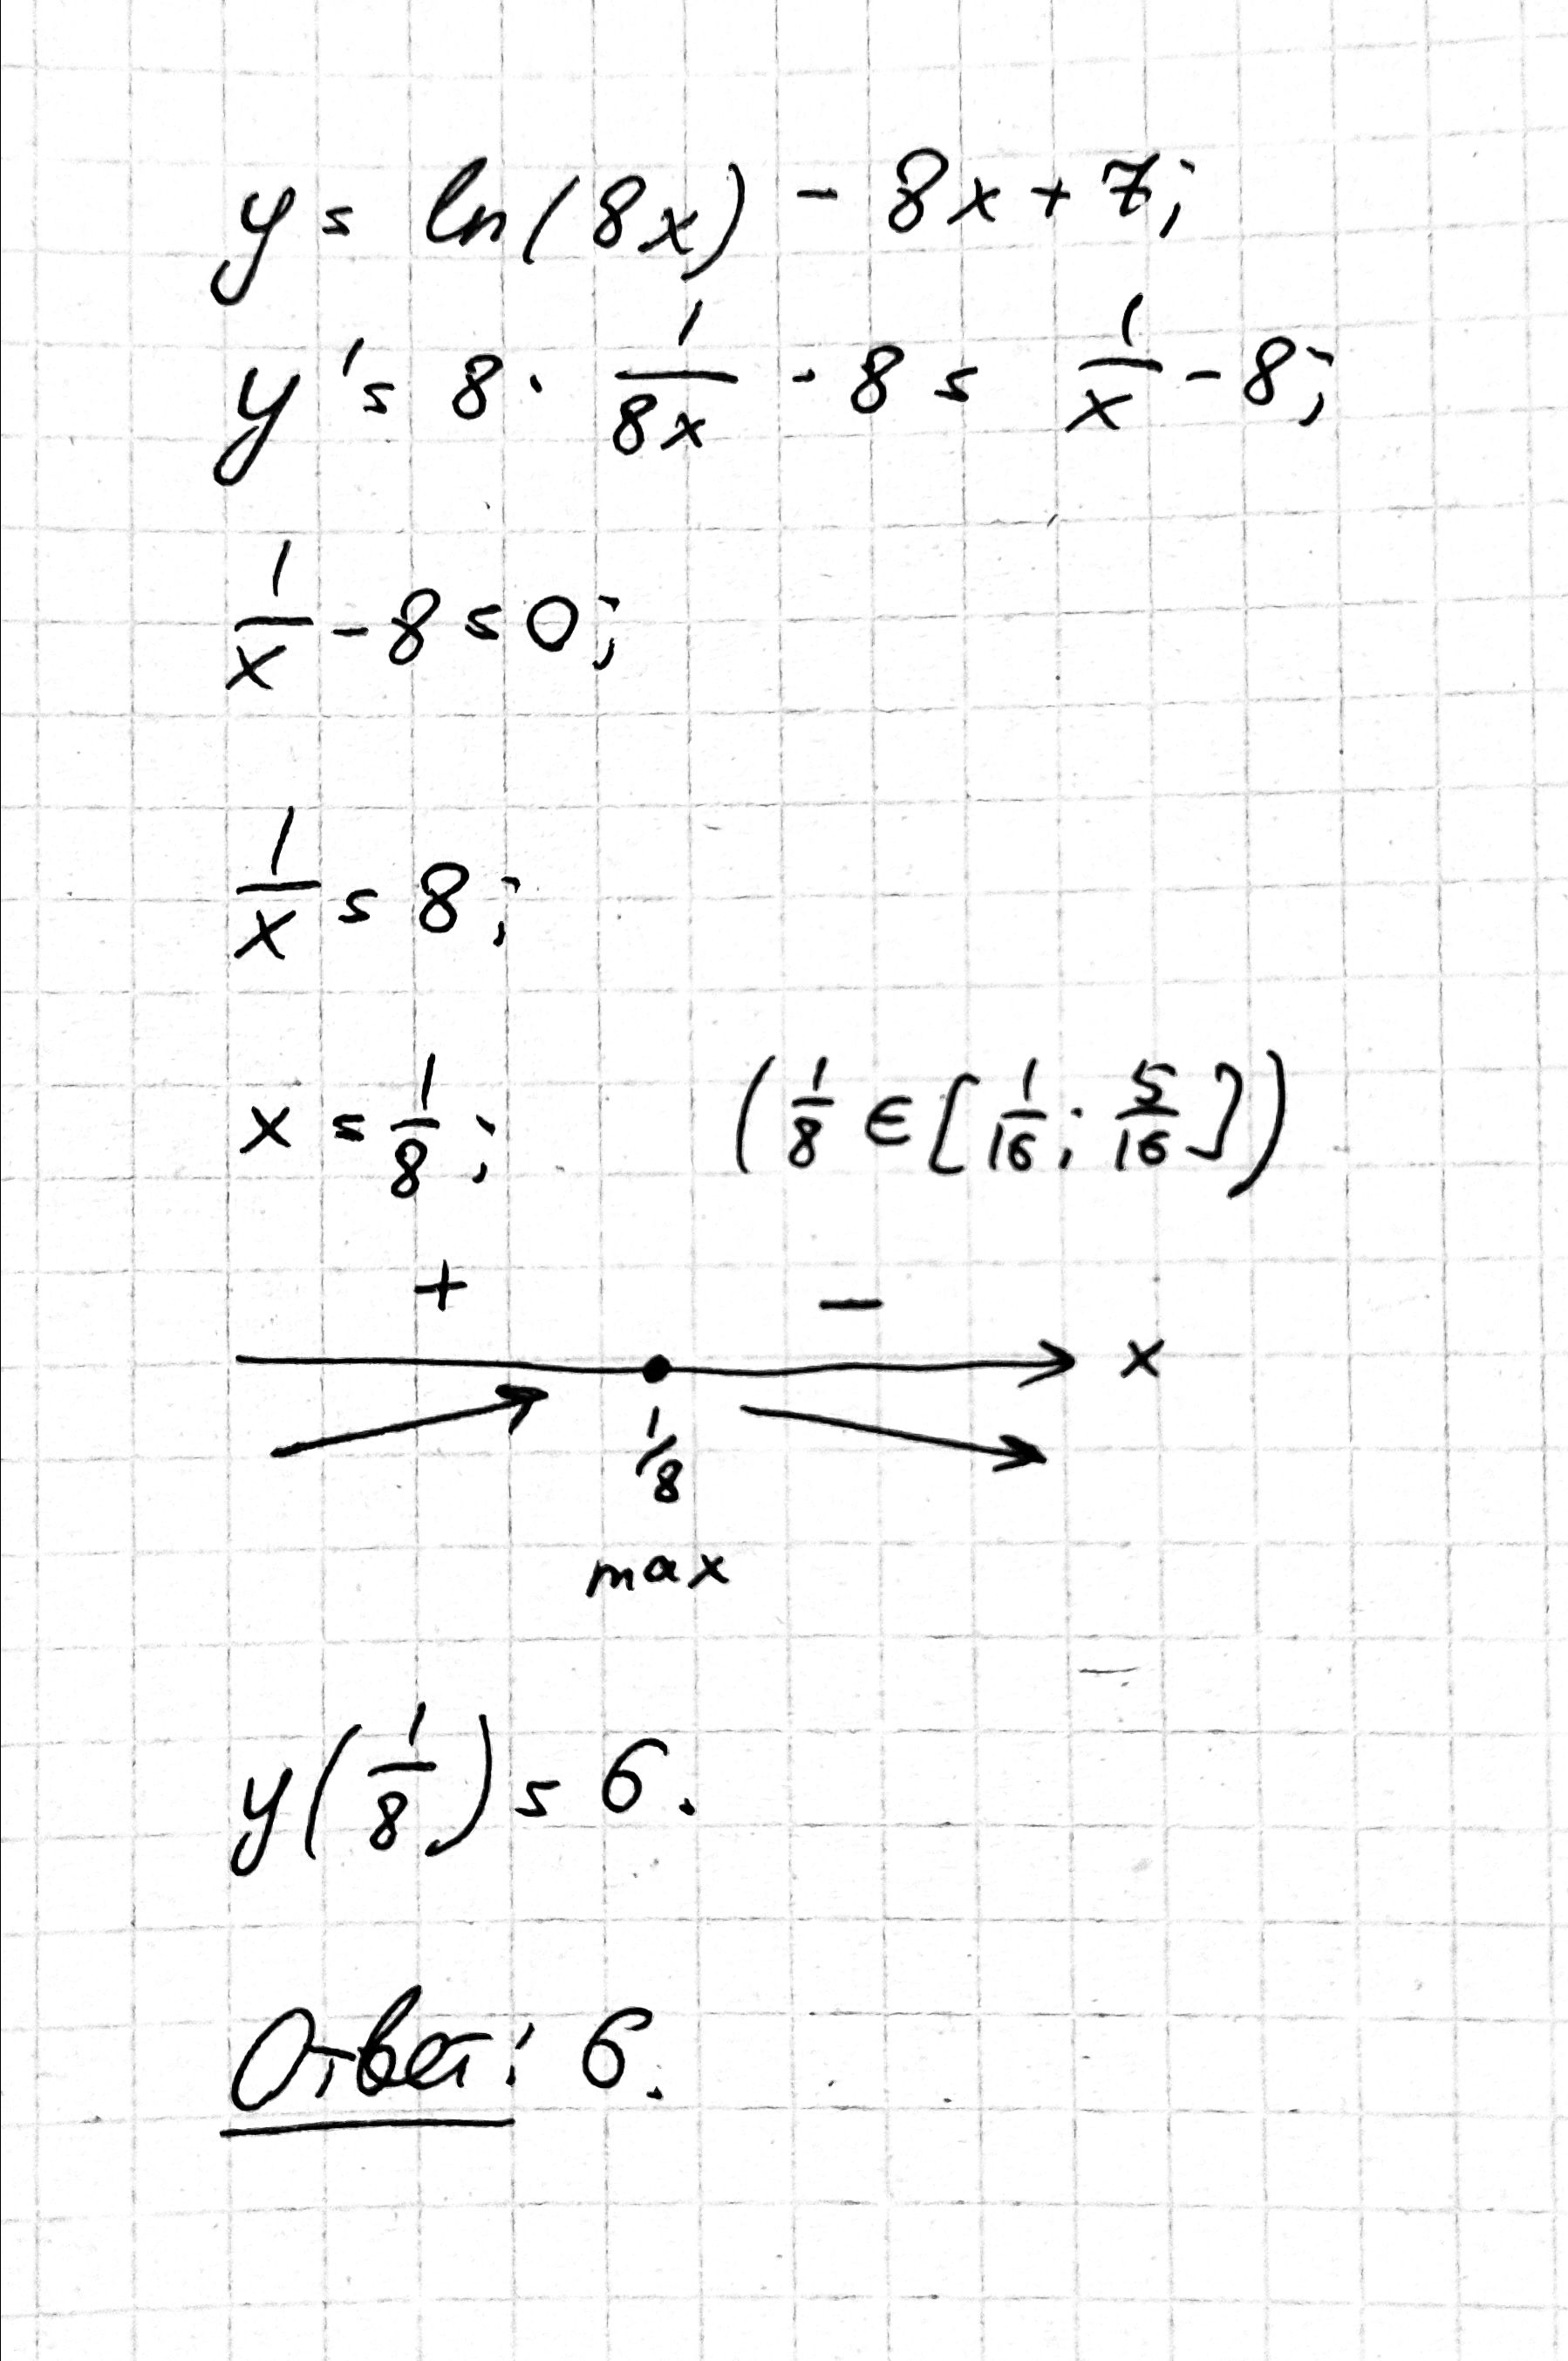 y = ln(8x) - 8x + 7;
y' = 8 · 1/8x - 8 = 1/x - 8;
1/x - 8 = 0;
1/x = 8;
x = 1/8; (1/8 ∈ [1/16; 5/16])
+ −
x
1/8
max
y(1/8) = 6.
Ответ: 6.